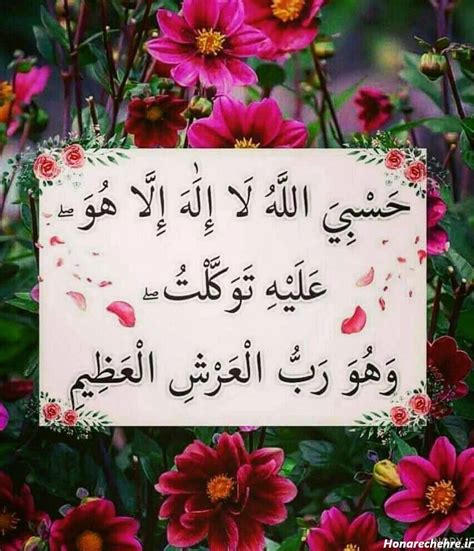 حَسْبِيَ اللَّهُ لَا إِلَٰهَ إِلَّا هُوَ ۖ
عَلَيْهِ تَوَكَّلْتُ ۖ
وَهُوَ رَبُّ الْعَرْشِ الْعَظِيمِ
Honarechehre.ir